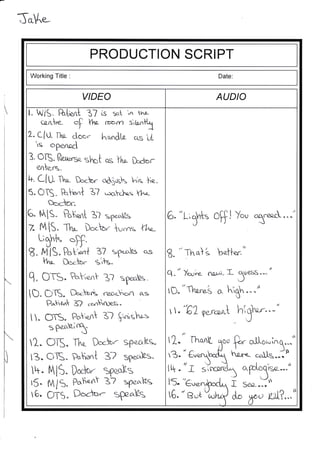 Jake
PRODUCTION SCRIPT
Working Title :
Date:
VIDEO
AUDIO
1. W/S. Patient 37 is sat in the
centre of the room silently
2. C/U. The door handle as it
is opened
3. OTS. Reverse shot as the Doctor
enters.
4. C/U. The Doctor adjusts his tie.
5. OTS. Patient 37 watches the
Doctor.
6. M/S. Patient 37 speaks
7. M/S. The Doctor turns the
Lights off.
8. M/S. Patient 37 speaks as
the Doctor sits.
9. OTS. Patient 37 speaks.
10. OTS. Doctors reaction as
Patient 37 continues.
11. OTS. Patient 37 finishes
speaking
12. OTS. The Doctor speaks.
13. OTS. Patient 37 speaks.
14. M/S. Doctor speaks
15. M/S. Patient 37 speaks
16. OTS. Doctor speaks
6. "Lights Off! You agreed..."
8. "That's better."
9. "You're new I guess..."
10. "There's a high..."
11. "62 percent higher..."
12. "Thank you for allowing..."
13. "Everybody here calls..."
14. "I sincerely apologise..."
15. "Everybody I see..."
16. "But why do you kill?..."